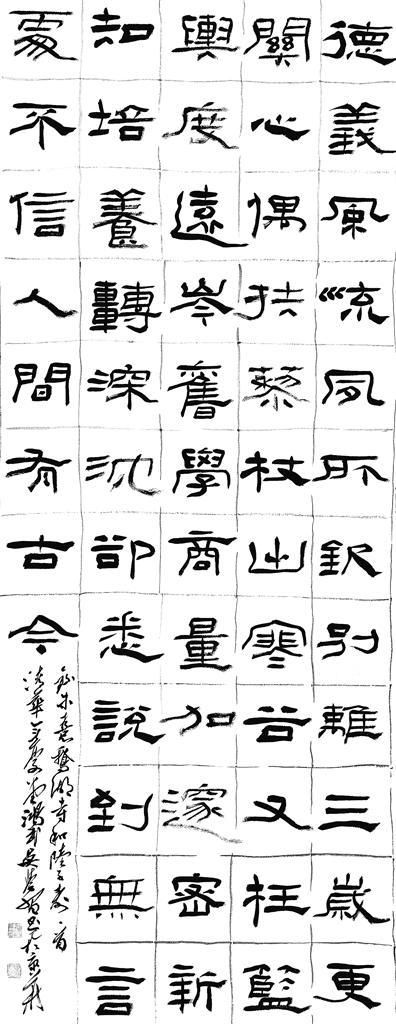 德義風流夙所欽別離三歲更
關心偶扶藜杖出寒谷又枉籃
輿度遠岑舊學商量加邃密新
知培養轉深沈卻悉說到無言
處不信人間有古今
朱熹鵝湖寺和陸子壽一首